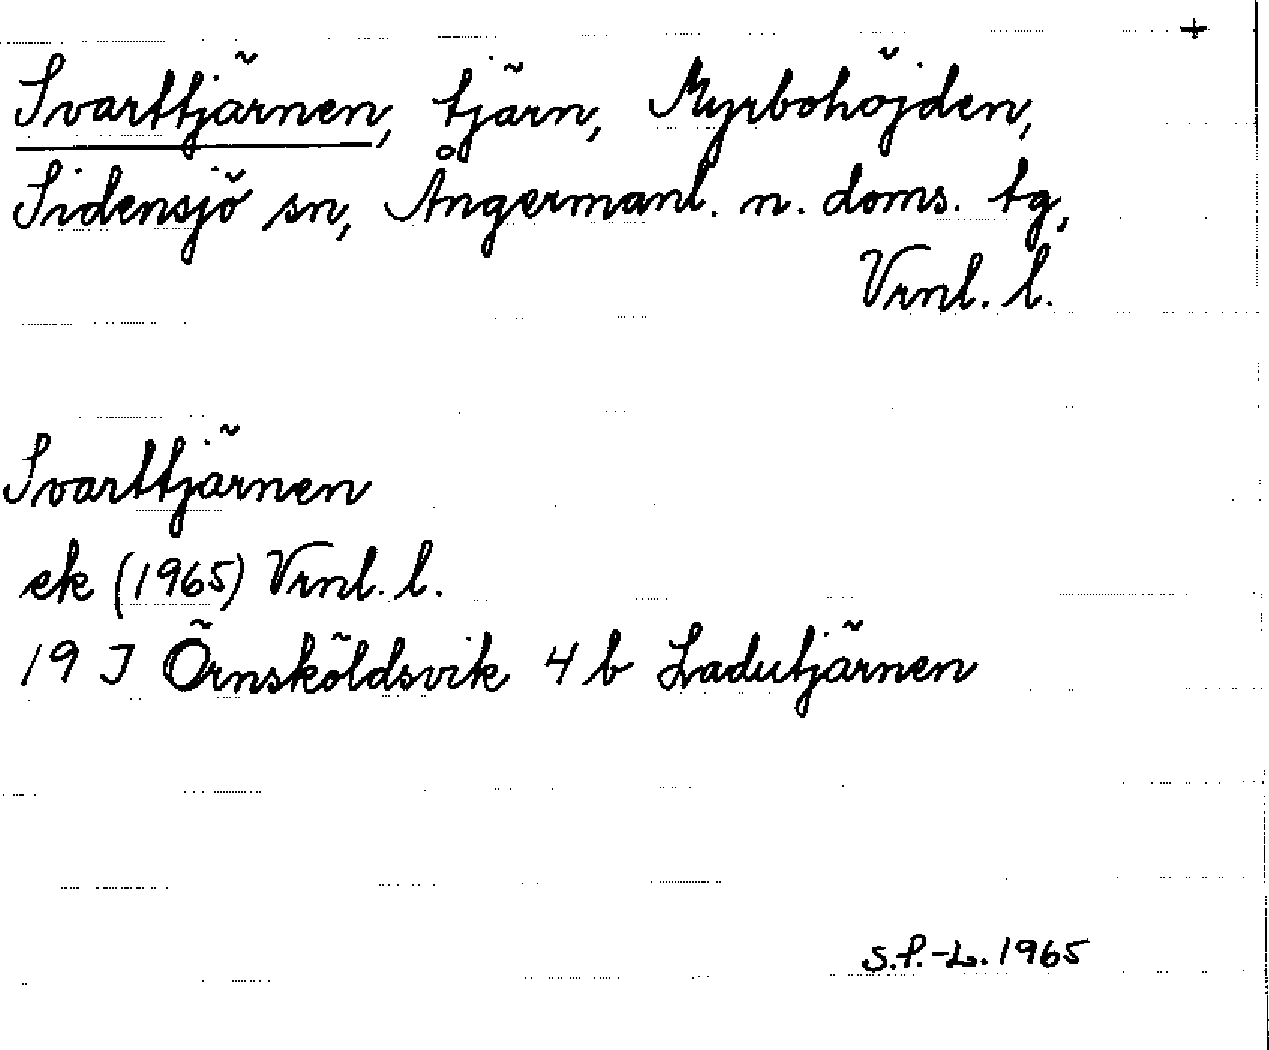 +
Svarttjärnen, tjärn, Myrbohöjden,
Sidensjö sn, Ångermanl. n. doms. tg,
Vrnl. l.
Svarttjärnen
ek (1965) Vrnl. l.
19 J Örnsköldsvik 4 b Ladutjärnen
S.P.-L. 1965